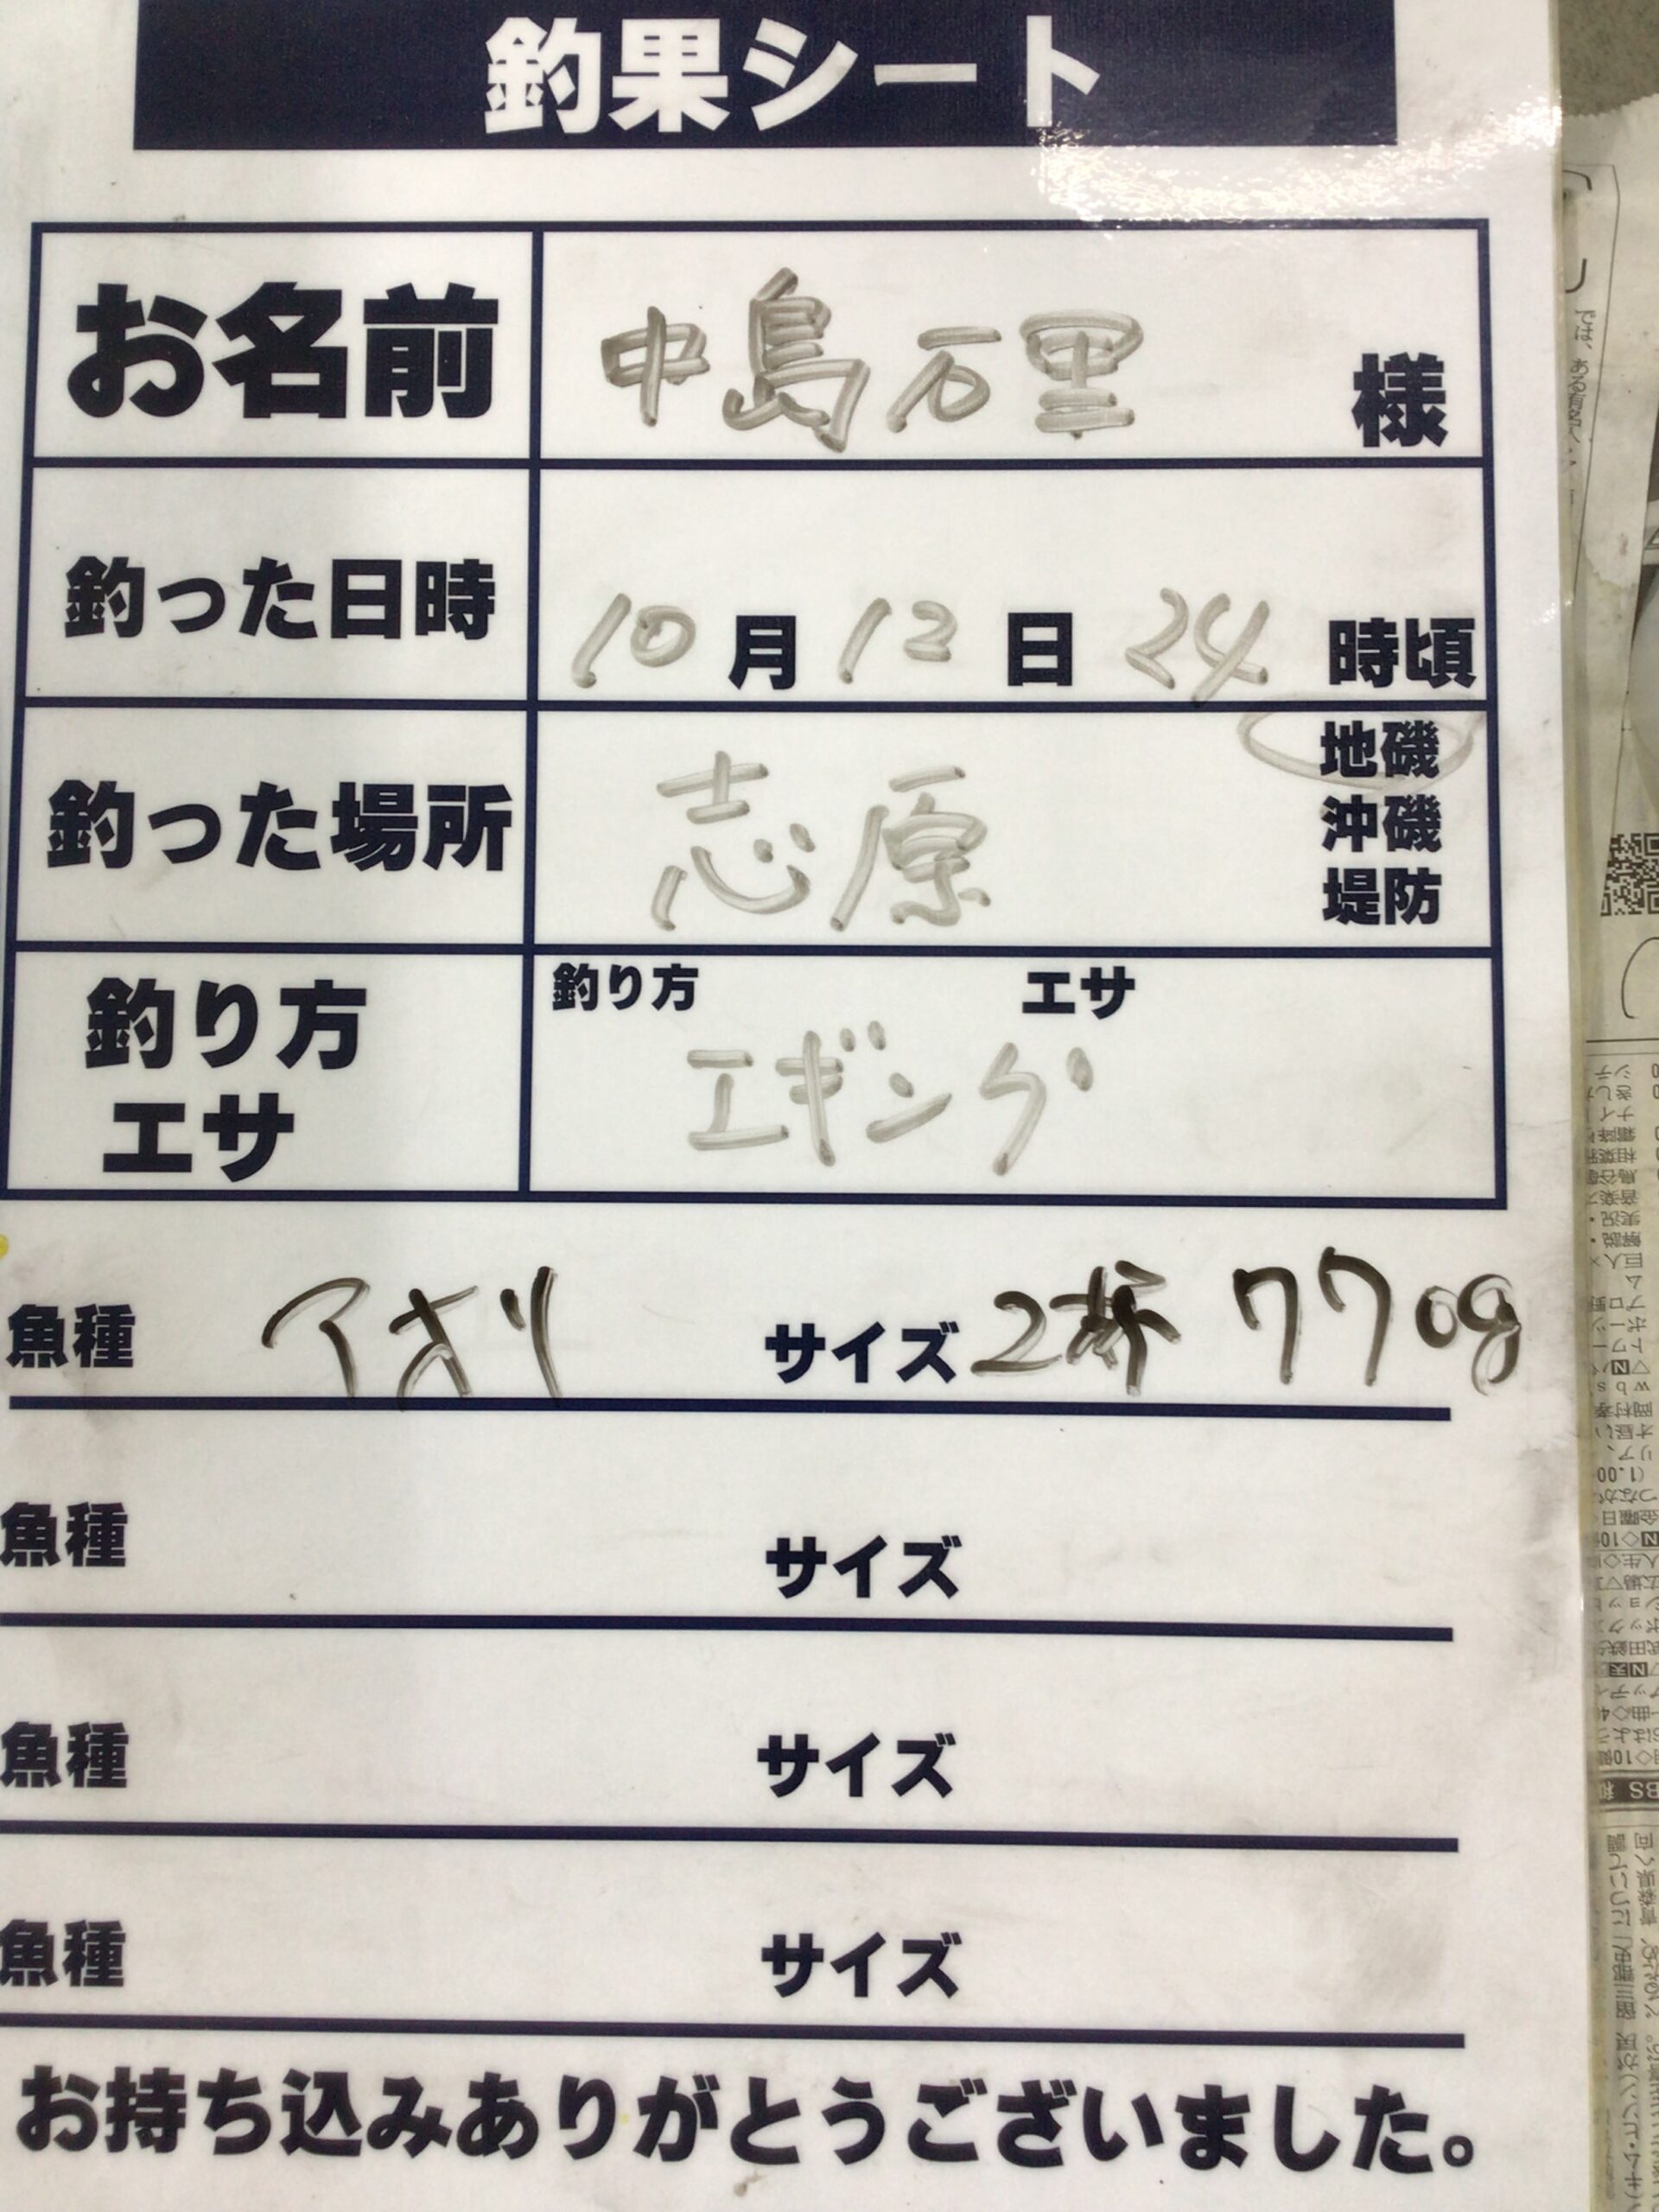 釣果シート
お名前 中島石里 様
釣った日時 10月12日24時頃
釣った場所 志原 地磯
沖磯
堤防
釣り方 エサ
釣り方 エギング
エサ
魚種 アオリ サイズ 2杯 770g
魚種 サイズ
魚種 サイズ
魚種 サイズ
お持ち込みありがとうございました。